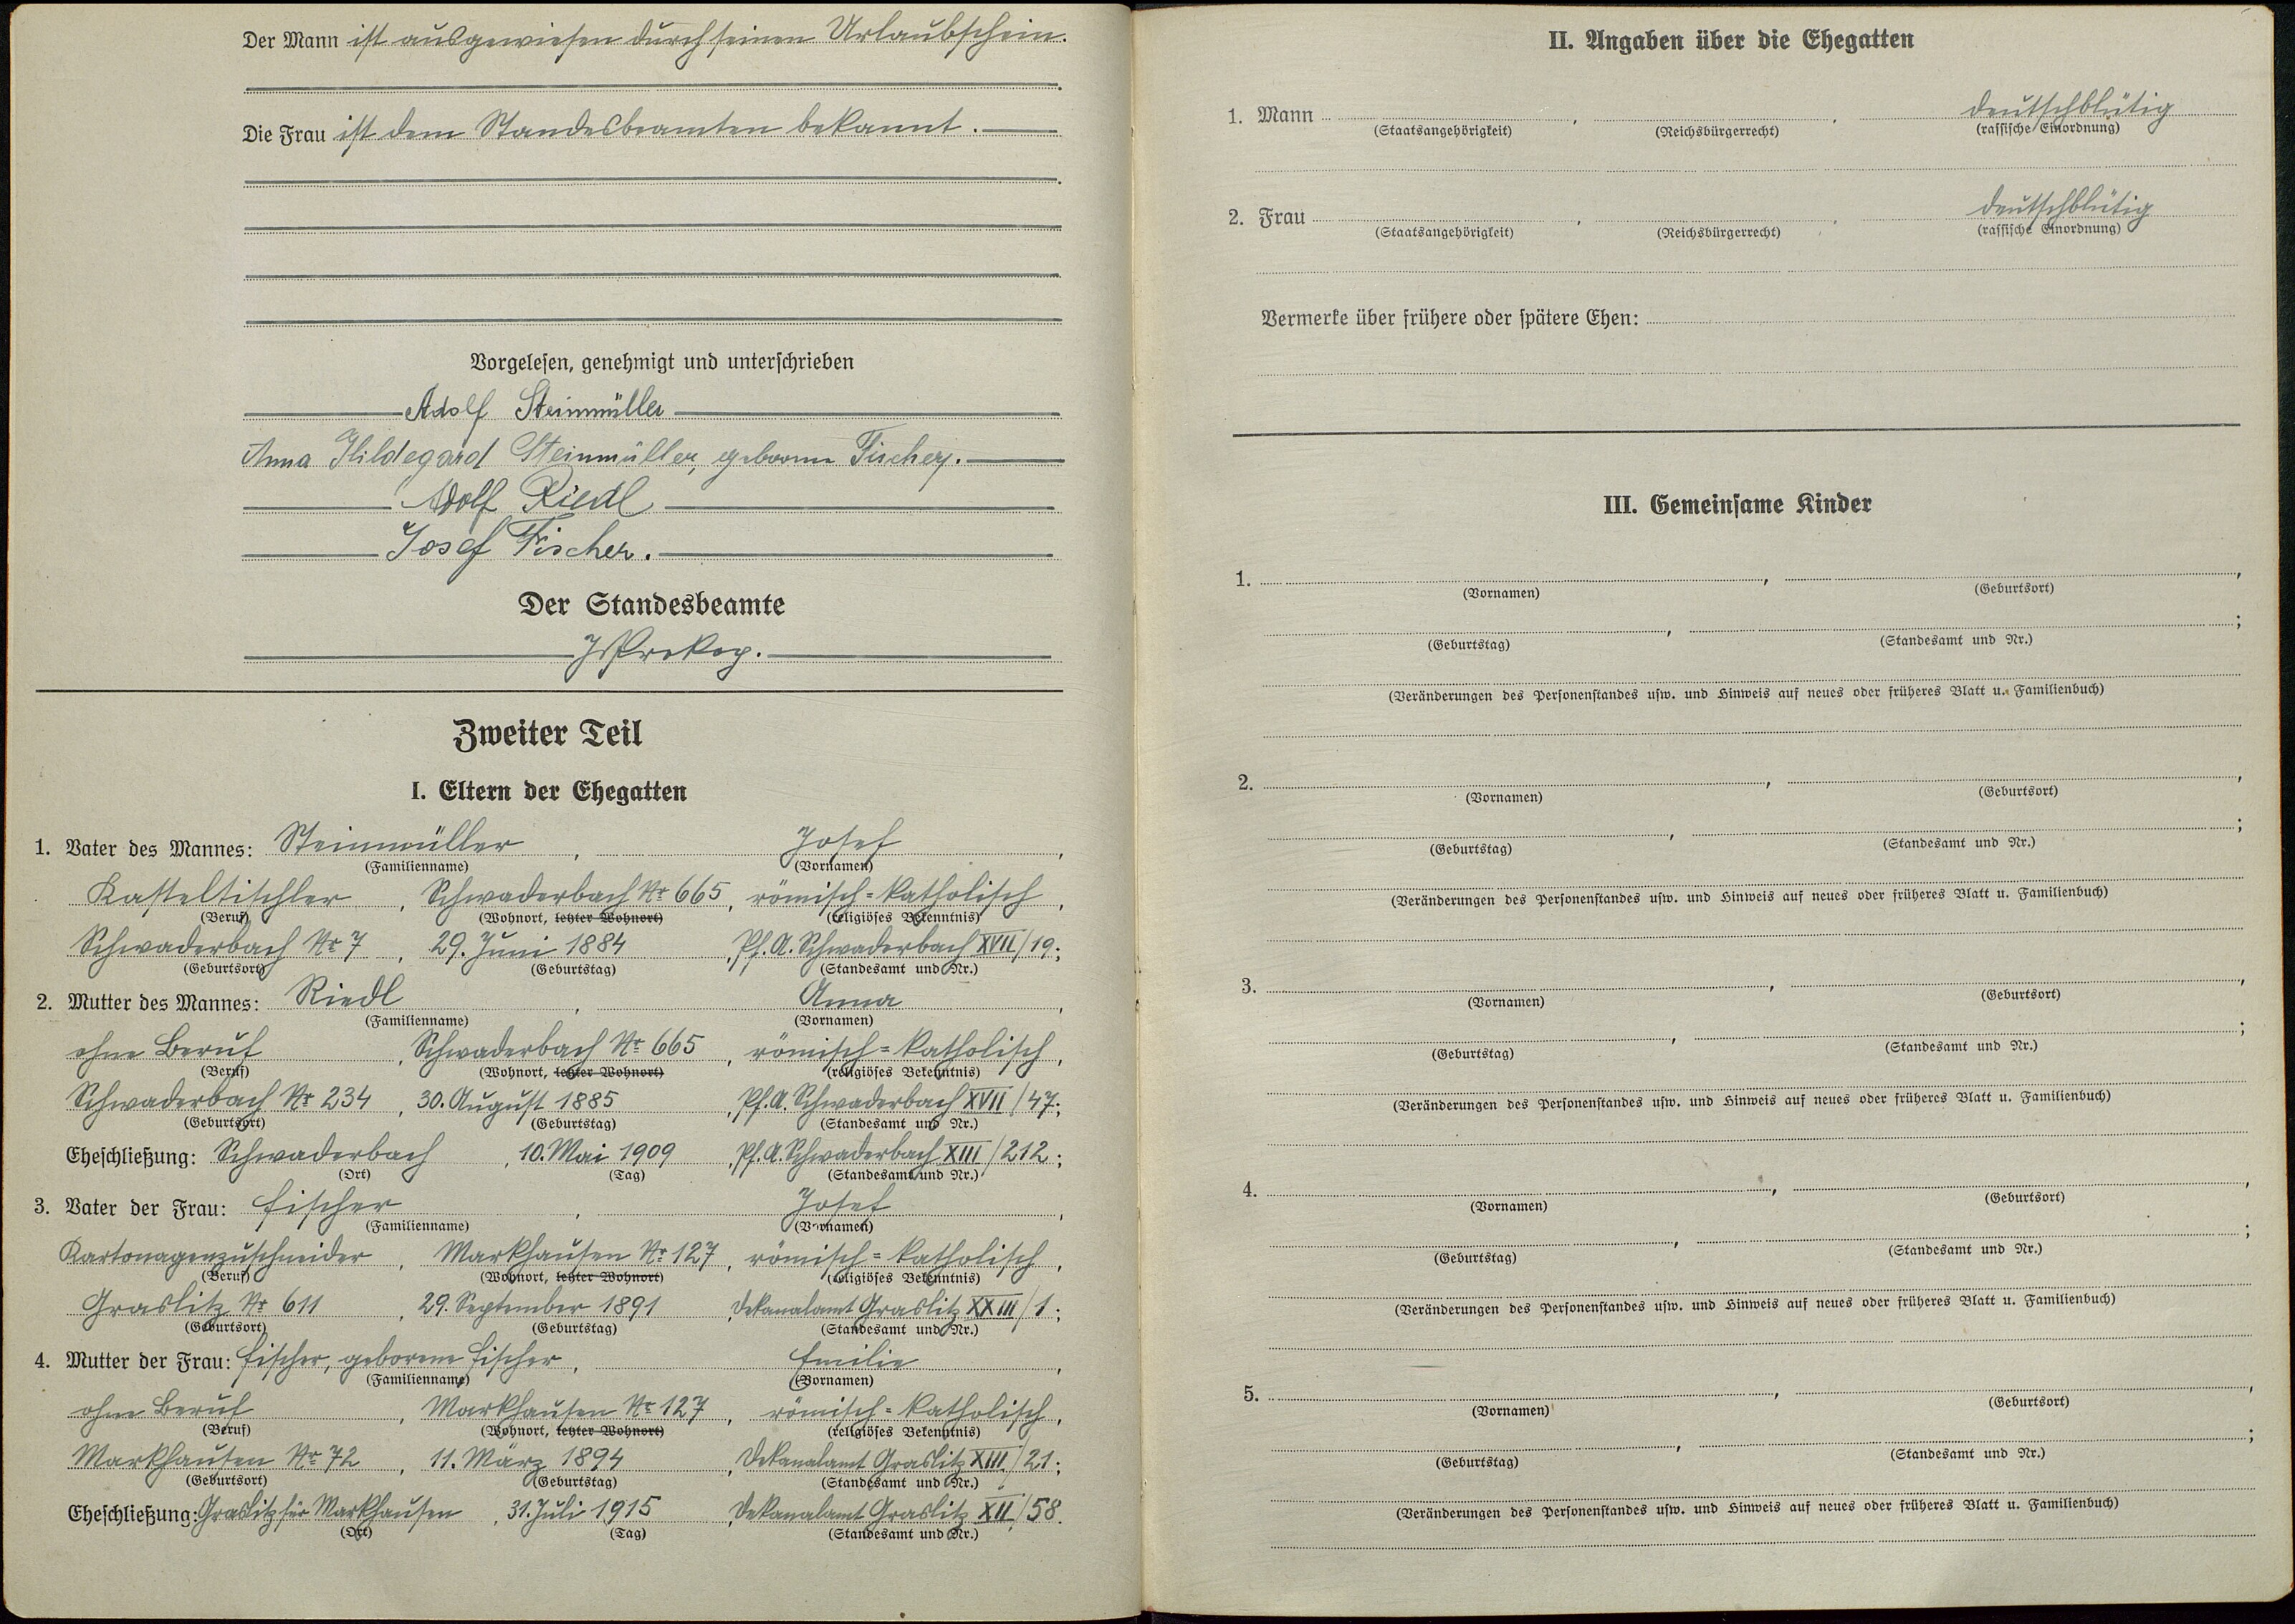 Der Mann ist ausgewiesen durch seinen Urlaubschein.
Die Frau ist dem Standesbeamten bekannt.
Vorgelesen, genehmigt und unterschrieben
Adolf Steinmüller
Anna Hildegard Steinmüller, geborene Fischer.
Adolf Riedl
Josef Fischer.
Der Standesbeamte
JProkop.
Zweiter Teil
I. Eltern der Ehegatten
1. Vater des Mannes: Steinmüller, Josef,
(Familienname) (Vornamen)
Kasteltischler, Schwaderbach Nr 665, römisch=katholisch,
(Beruf) (Wohnort, letzter Wohnort) (religiöses Bekenntnis)
Schwaderbach Nr 7, 29. Juni 1884, Pf. A. Schwaderbach XVII/19;
(Geburtsort) (Geburtstag) (Standesamt und Nr.)
2. Mutter des Mannes: Riedl, Anna,
(Familienname) (Vornamen)
ohne Beruf, Schwaderbach Nr 665, römisch=katholisch,
(Beruf) (Wohnort, letzter Wohnort) (religiöses Bekenntnis)
Schwaderbach Nr 234, 30. August 1885, Pf. A. Schwaderbach XVII/47;
(Geburtsort) (Geburtstag) (Standesamt und Nr.)
Eheschließung: Schwaderbach, 10. Mai 1909, Pf. A. Schwaderbach XIII/212;
(Ort) (Tag) (Standesamt und Nr.)
3. Vater der Frau: Fischer, Josef,
(Familienname) (Vornamen)
Kartonagenzuschneider, Markhausen Nr 127, römisch=katholisch,
(Beruf) (Wohnort, letzter Wohnort) (religiöses Bekenntnis)
Graslitz Nr 611, 29. September 1891, Dekanalamt Graslitz XXIII/1;
(Geburtsort) (Geburtstag) (Standesamt und Nr.)
4. Mutter der Frau: Fischer, geborene Fischer, Emilie,
(Familienname) (Vornamen)
ohne Beruf, Markhausen Nr 127, römisch=katholisch,
(Beruf) (Wohnort, letzter Wohnort) (religiöses Bekenntnis)
Markhausen Nr 72, 11. März 1894, Dekanalamt Graslitz XIII/21;
(Geburtsort) (Geburtstag) (Standesamt und Nr.)
Eheschließung: Graslitz für Markhausen, 31. Juli 1915, Dekanalamt Graslitz XII/58.
(Ort) (Tag) (Standesamt und Nr.)
II. Angaben über die Ehegatten
1. Mann , , deutschblütig
(Staatsangehörigkeit) (Reichsbürgerrecht) (rassische Einordnung)
2. Frau , , deutschblütig
(Staatsangehörigkeit) (Reichsbürgerrecht) (rassische Einordnung)
Vermerke über frühere oder spätere Ehen:
III. Gemeinsame Kinder
1. , ,
(Vornamen) (Geburtsort)
, ;
(Geburtstag) (Standesamt und Nr.)
(Veränderungen des Personenstandes usw. und Hinweis auf neues oder früheres Blatt u. Familienbuch)
2. , ,
(Vornamen) (Geburtsort)
, ;
(Geburtstag) (Standesamt und Nr.)
(Veränderungen des Personenstandes usw. und Hinweis auf neues oder früheres Blatt u. Familienbuch)
3. , ,
(Vornamen) (Geburtsort)
, ;
(Geburtstag) (Standesamt und Nr.)
(Veränderungen des Personenstandes usw. und Hinweis auf neues oder früheres Blatt u. Familienbuch)
4. , ,
(Vornamen) (Geburtsort)
, ;
(Geburtstag) (Standesamt und Nr.)
(Veränderungen des Personenstandes usw. und Hinweis auf neues oder früheres Blatt u. Familienbuch)
5. , ,
(Vornamen) (Geburtsort)
, ;
(Geburtstag) (Standesamt und Nr.)
(Veränderungen des Personenstandes usw. und Hinweis auf neues oder früheres Blatt u. Familienbuch)